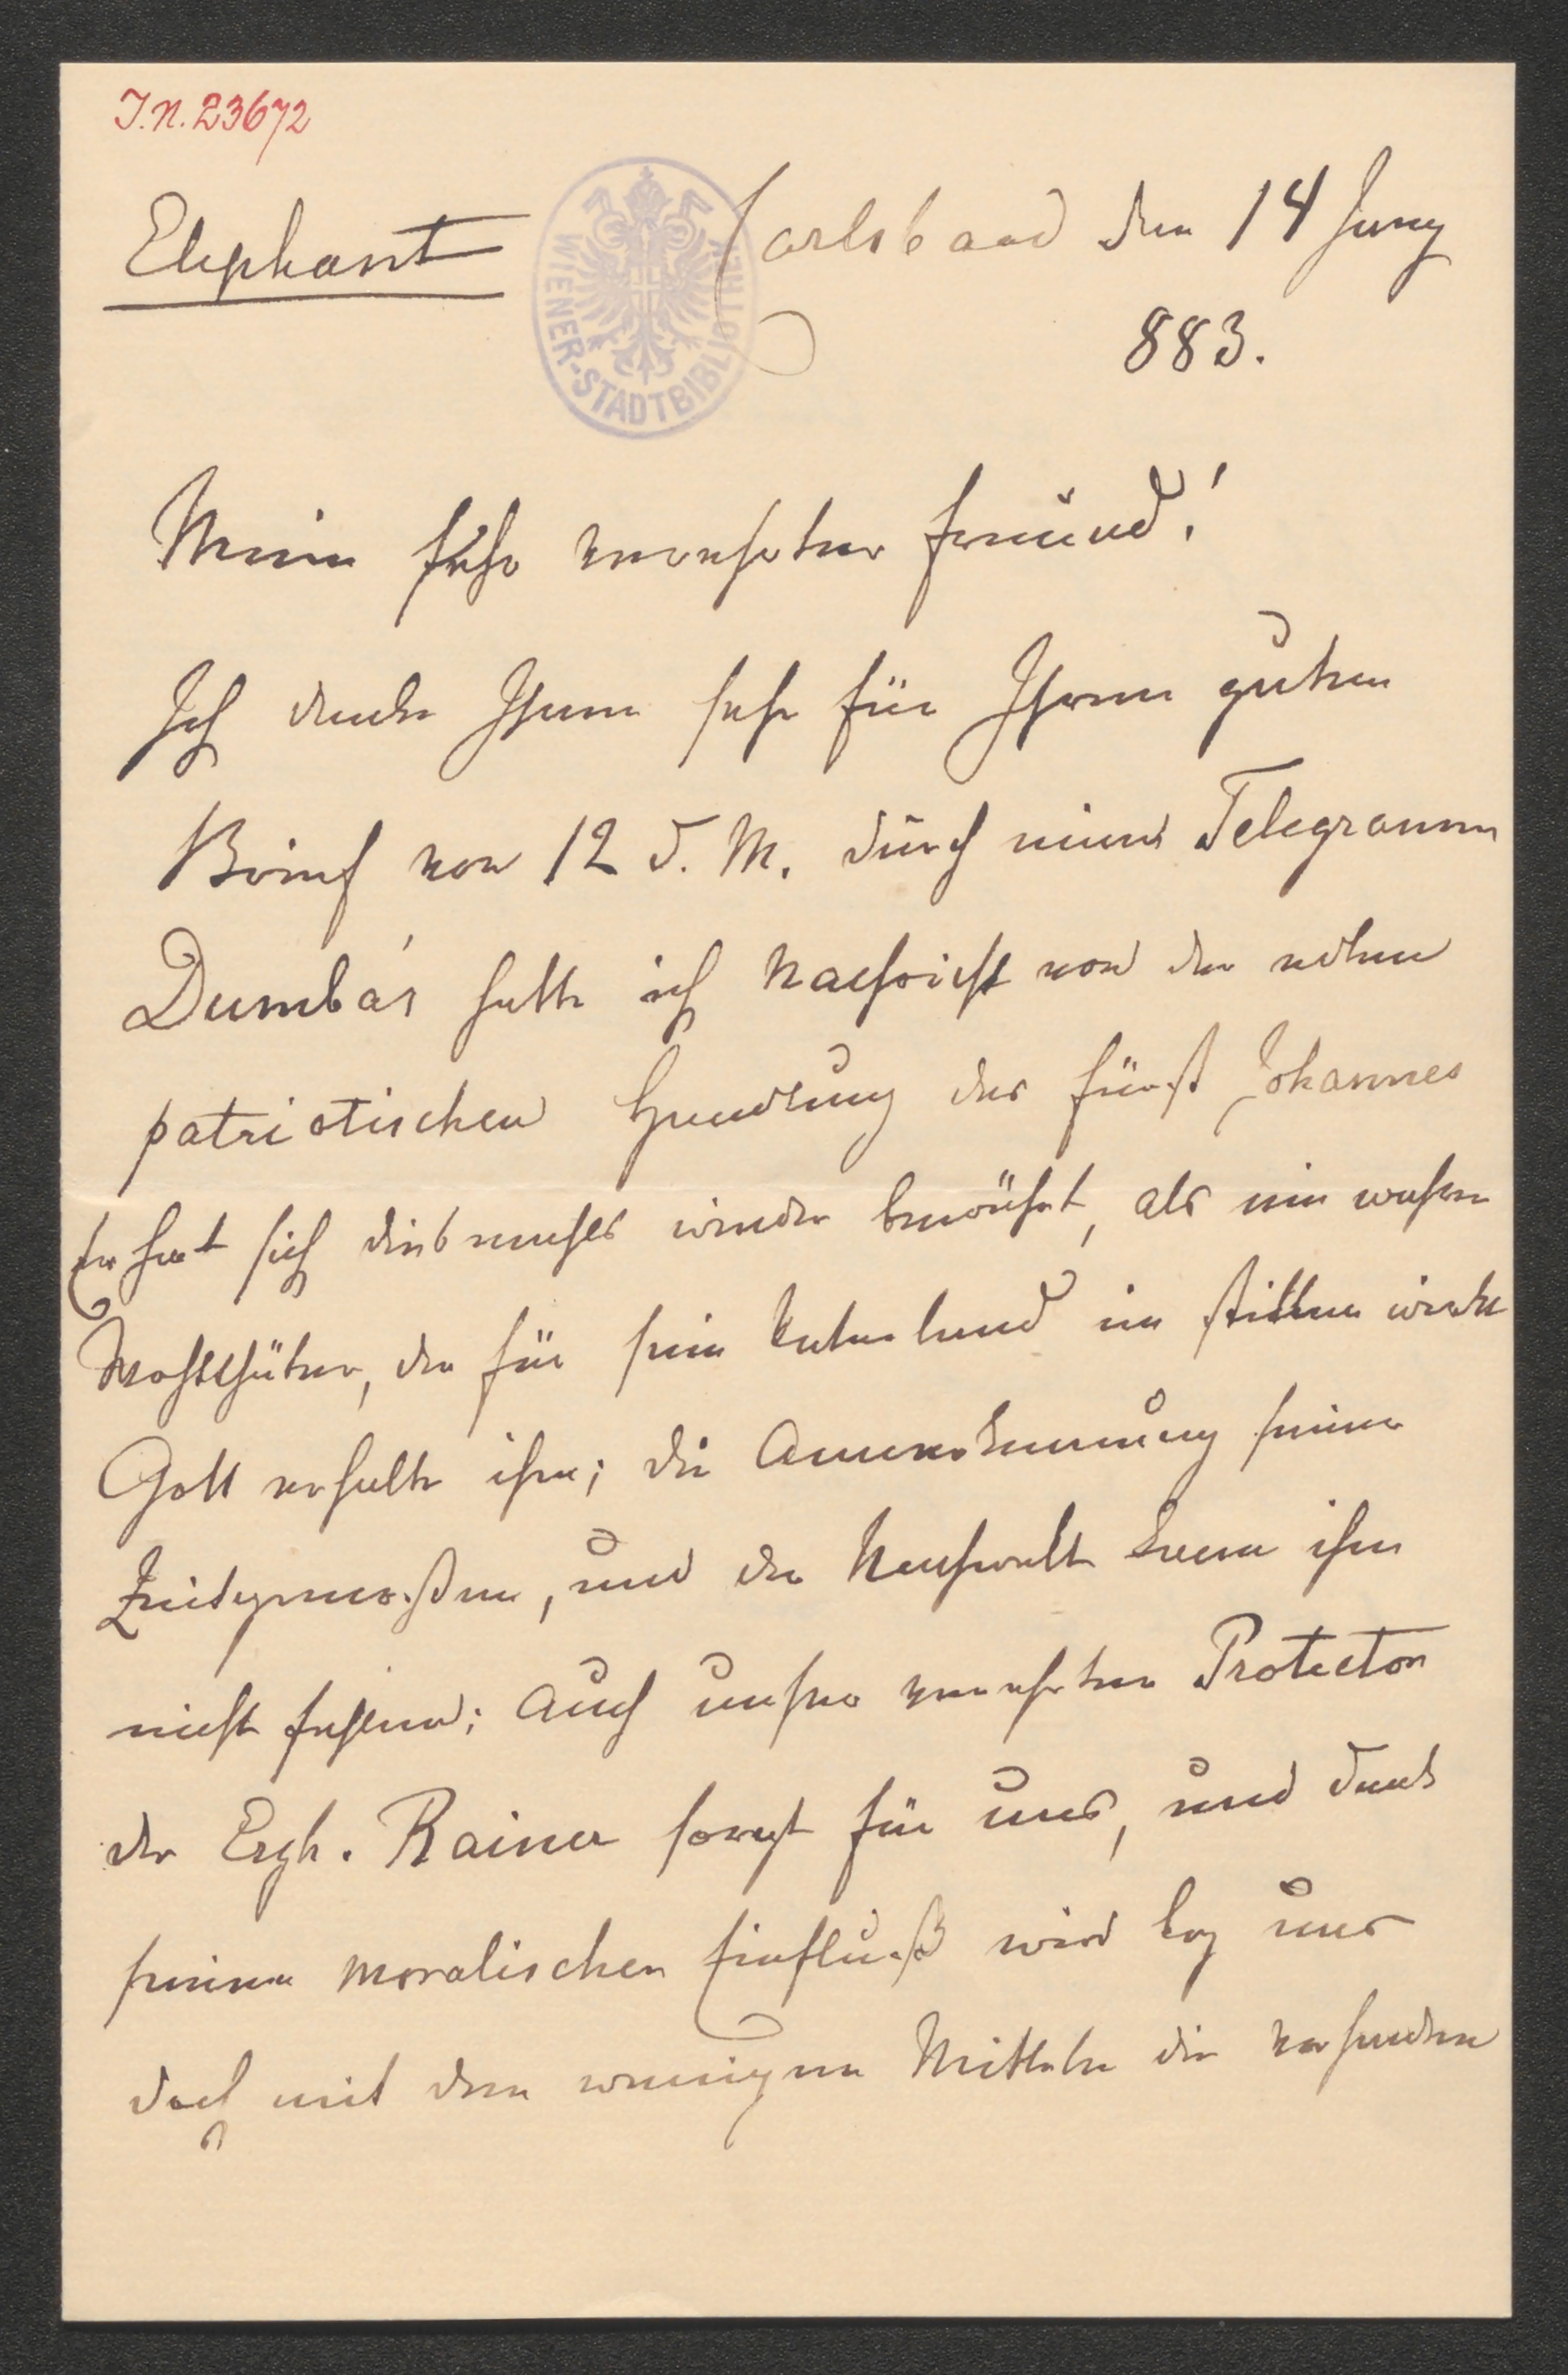 I.N. 23672
Elephant
Carlsbaad den 14 Juny
883.
WIENER-STADTBIBLIOTHEK
Mein sehr verehrter Freund!
Ich danke Ihnen sehr für Ihren guten
Brief von 12 d. M. durch eines Telegramm
Dumba's hatte ich Nachricht von der edlen
patriotischen Handlung des Fürst Johannes
Er hat sich diesmahls wieder bewährt, als ein wahrer
Wohlthäter, der für sein Vaterland im stillen wirkt
Gott erhalte ihn; die Anerkennung seiner
Zeitgenoßen, und der Nachwelt kann ihm
nicht fehlen; Auch unser verehrter Protector
der Erzh. Rainer sorgt für uns, und dank
seinem moralischen Einfluß wird bey uns
doch mit den wenigen Mitteln die